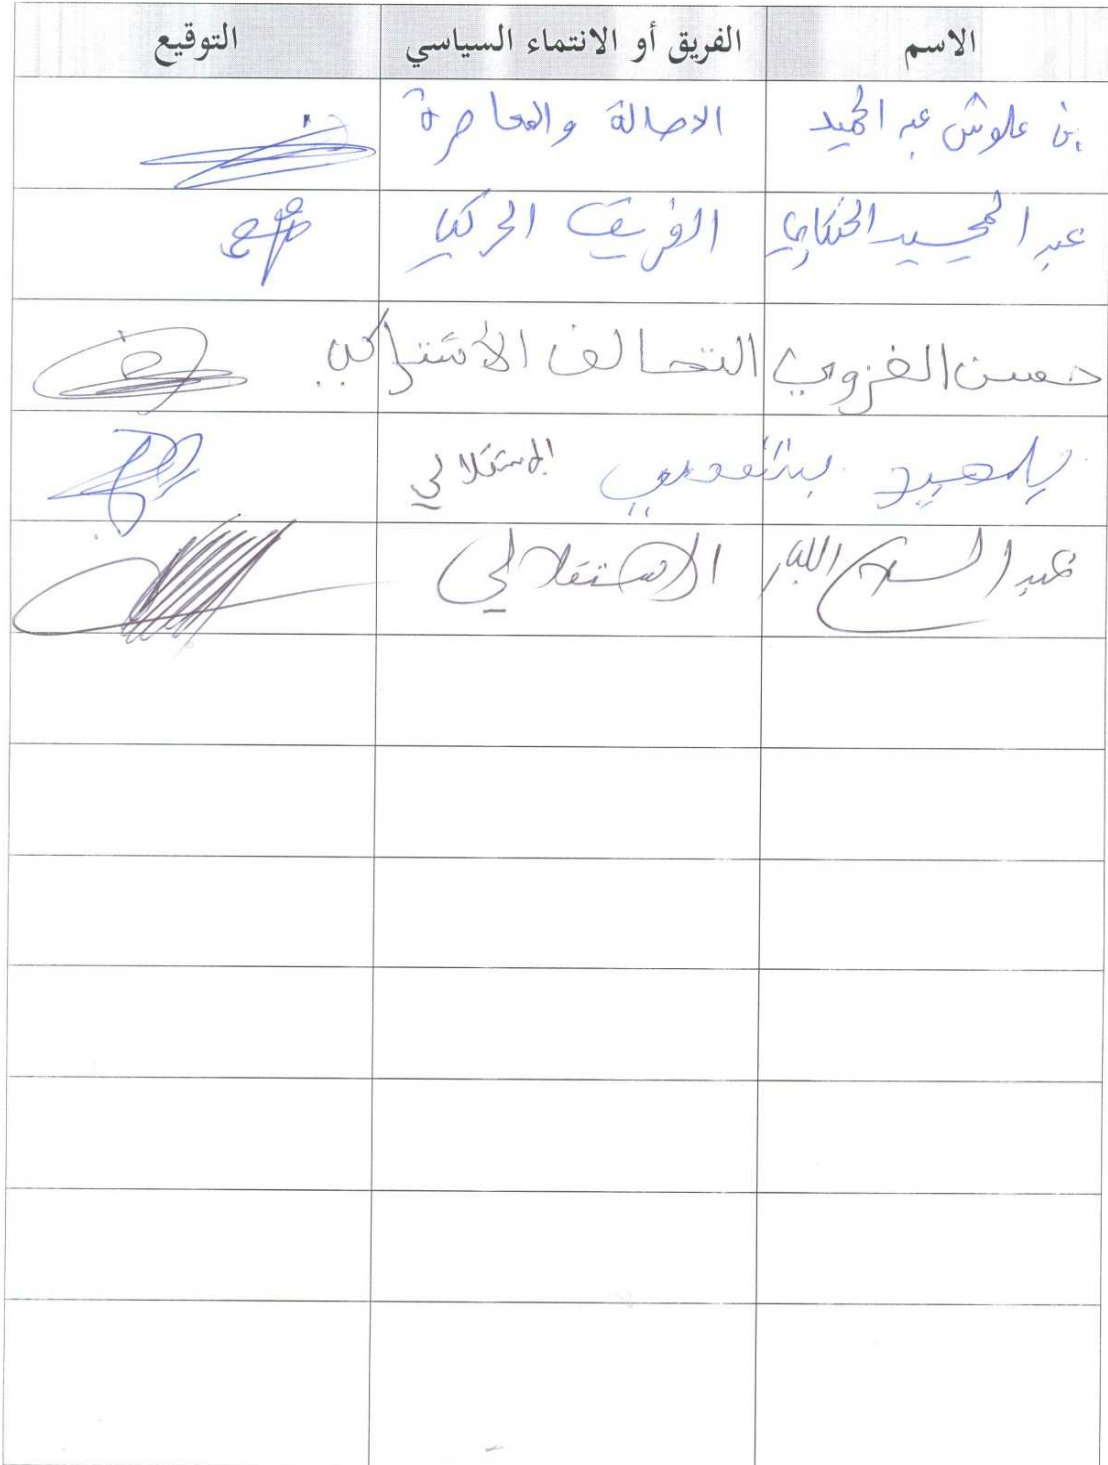 الاسم الفريق أو الانتماء السياسي التوقيع
بن علوش عبد الحميد الاصالة والمعاصرة
عبد المجيد الحنكاري الفريق الحركي
حسن الغزوي التحالف الاشتراكي
الاستقلالي
عبد السلام اللبار الاستقلالي